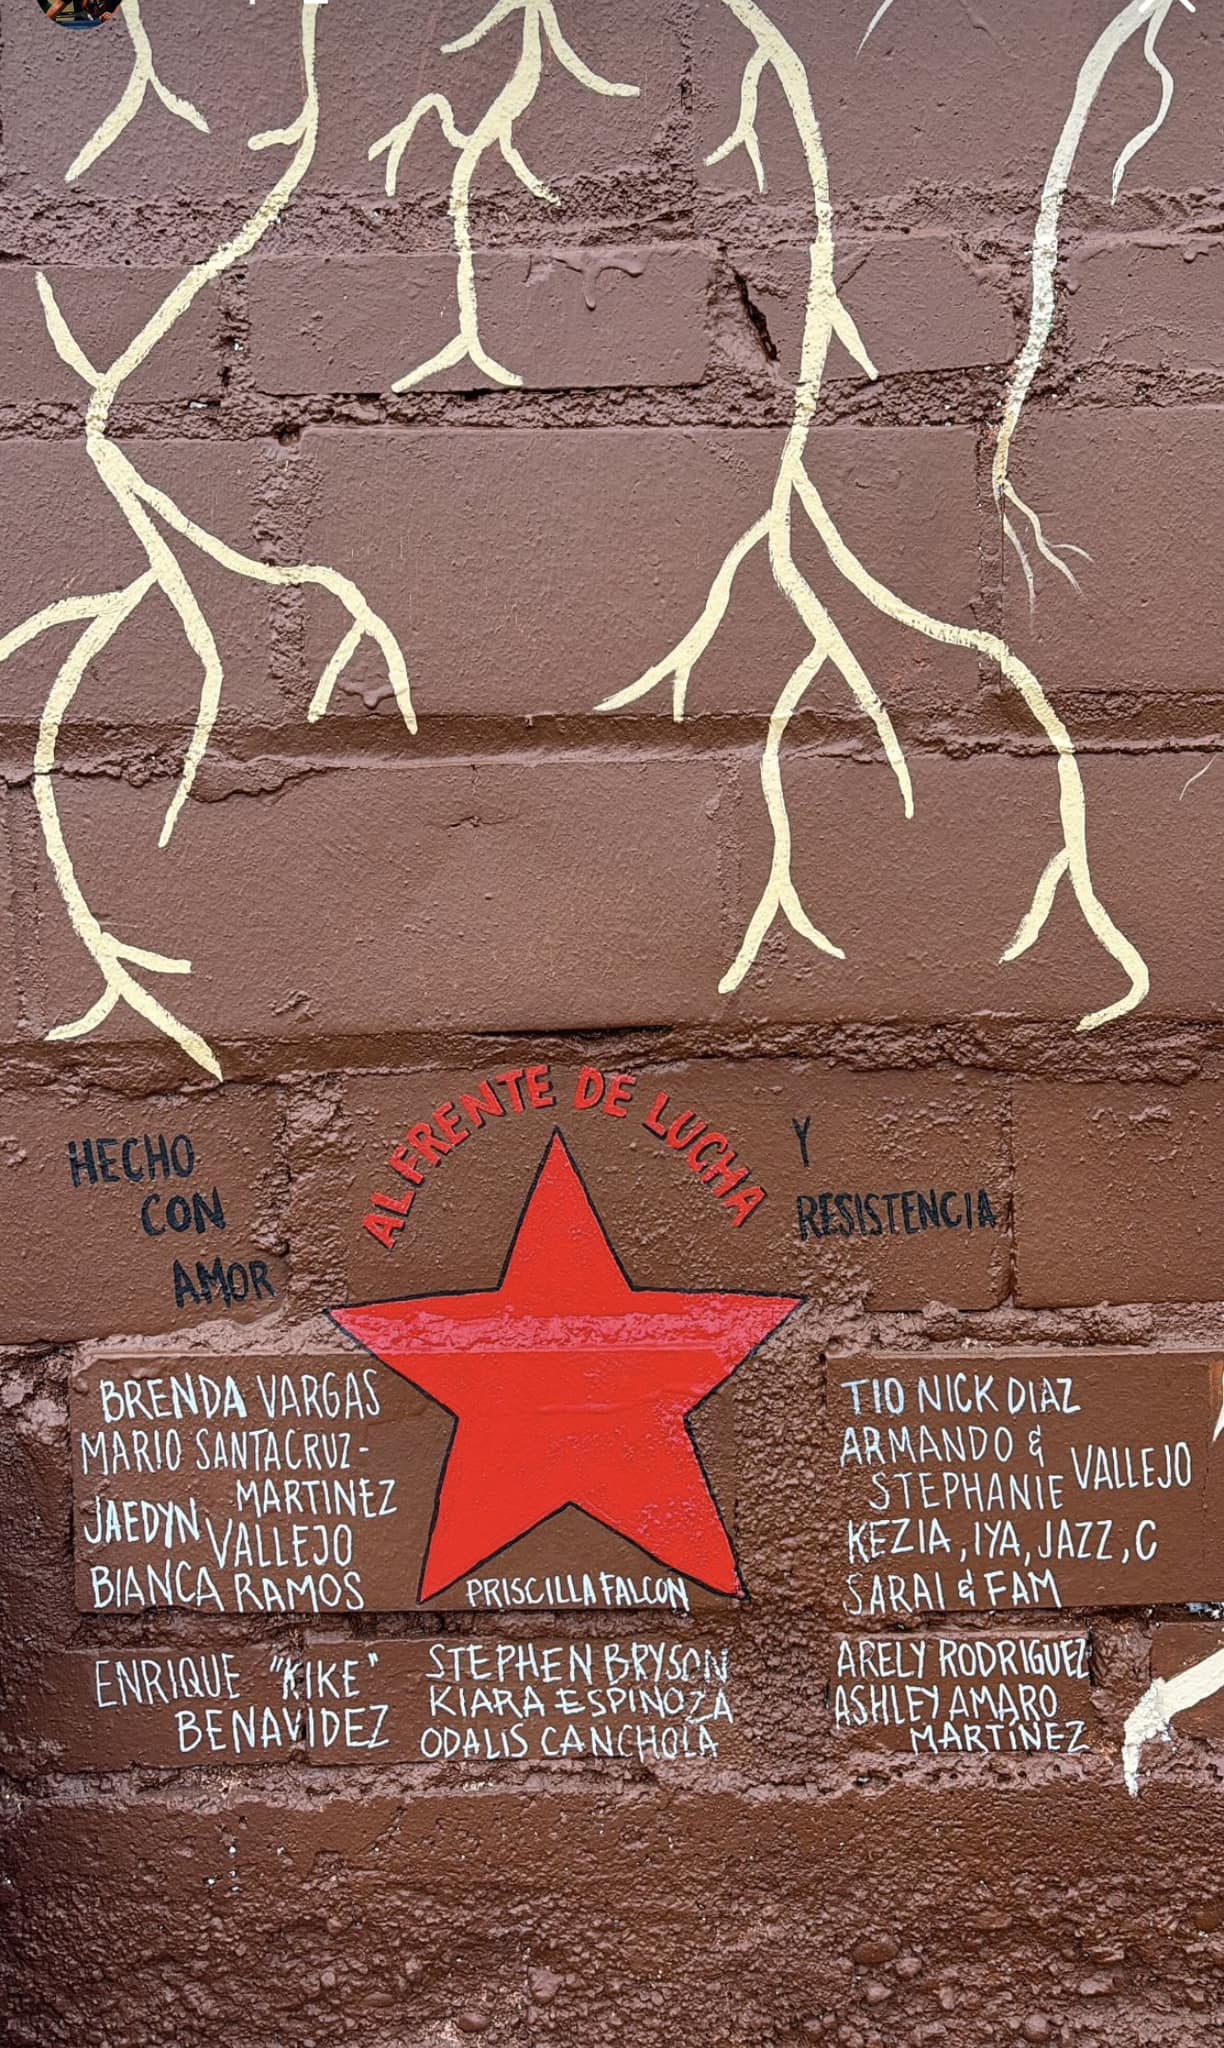 AL FRENTE DE LUCHA
HECHO
CON
AMOR
Y
RESISTENCIA
BRENDA VARGAS
MARIO SANTACRUZ-
MARTINEZ
JAEDYN VALLEJO
BIANCA RAMOS
ENRIQUE "KIKE"
BENAVIDEZ
PRISCILLA FALCON
STEPHEN BRYSON
KIARA ESPINOZA
ODALIS CANCHOLA
TIO NICK DIAZ
ARMANDO &
STEPHANIE VALLEJO
KEZIA, IYA, JAZZ, C
SARAI & FAM
ARELY RODRIGUEZ
ASHLEY AMARO
MARTÍNEZ